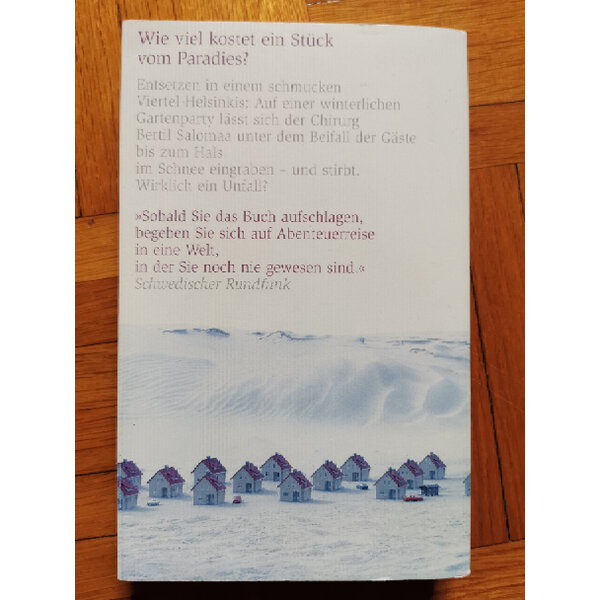 Wie viel kostet ein Stück
vom Paradies?
Entsetzen in einem schmucken
Viertel Helsinkis: Auf einer winterlichen
Gartenparty lässt sich der Chirurg
Bertil Salomaa unter dem Beifall der Gäste
bis zum Hals
im Schnee eingraben – und stirbt.
Wirklich ein Unfall?
»Sobald Sie das Buch aufschlagen,
begeben Sie sich auf Abenteuerreise
in eine Welt,
in der Sie noch nie gewesen sind.«
Schwedischer Rundfunk